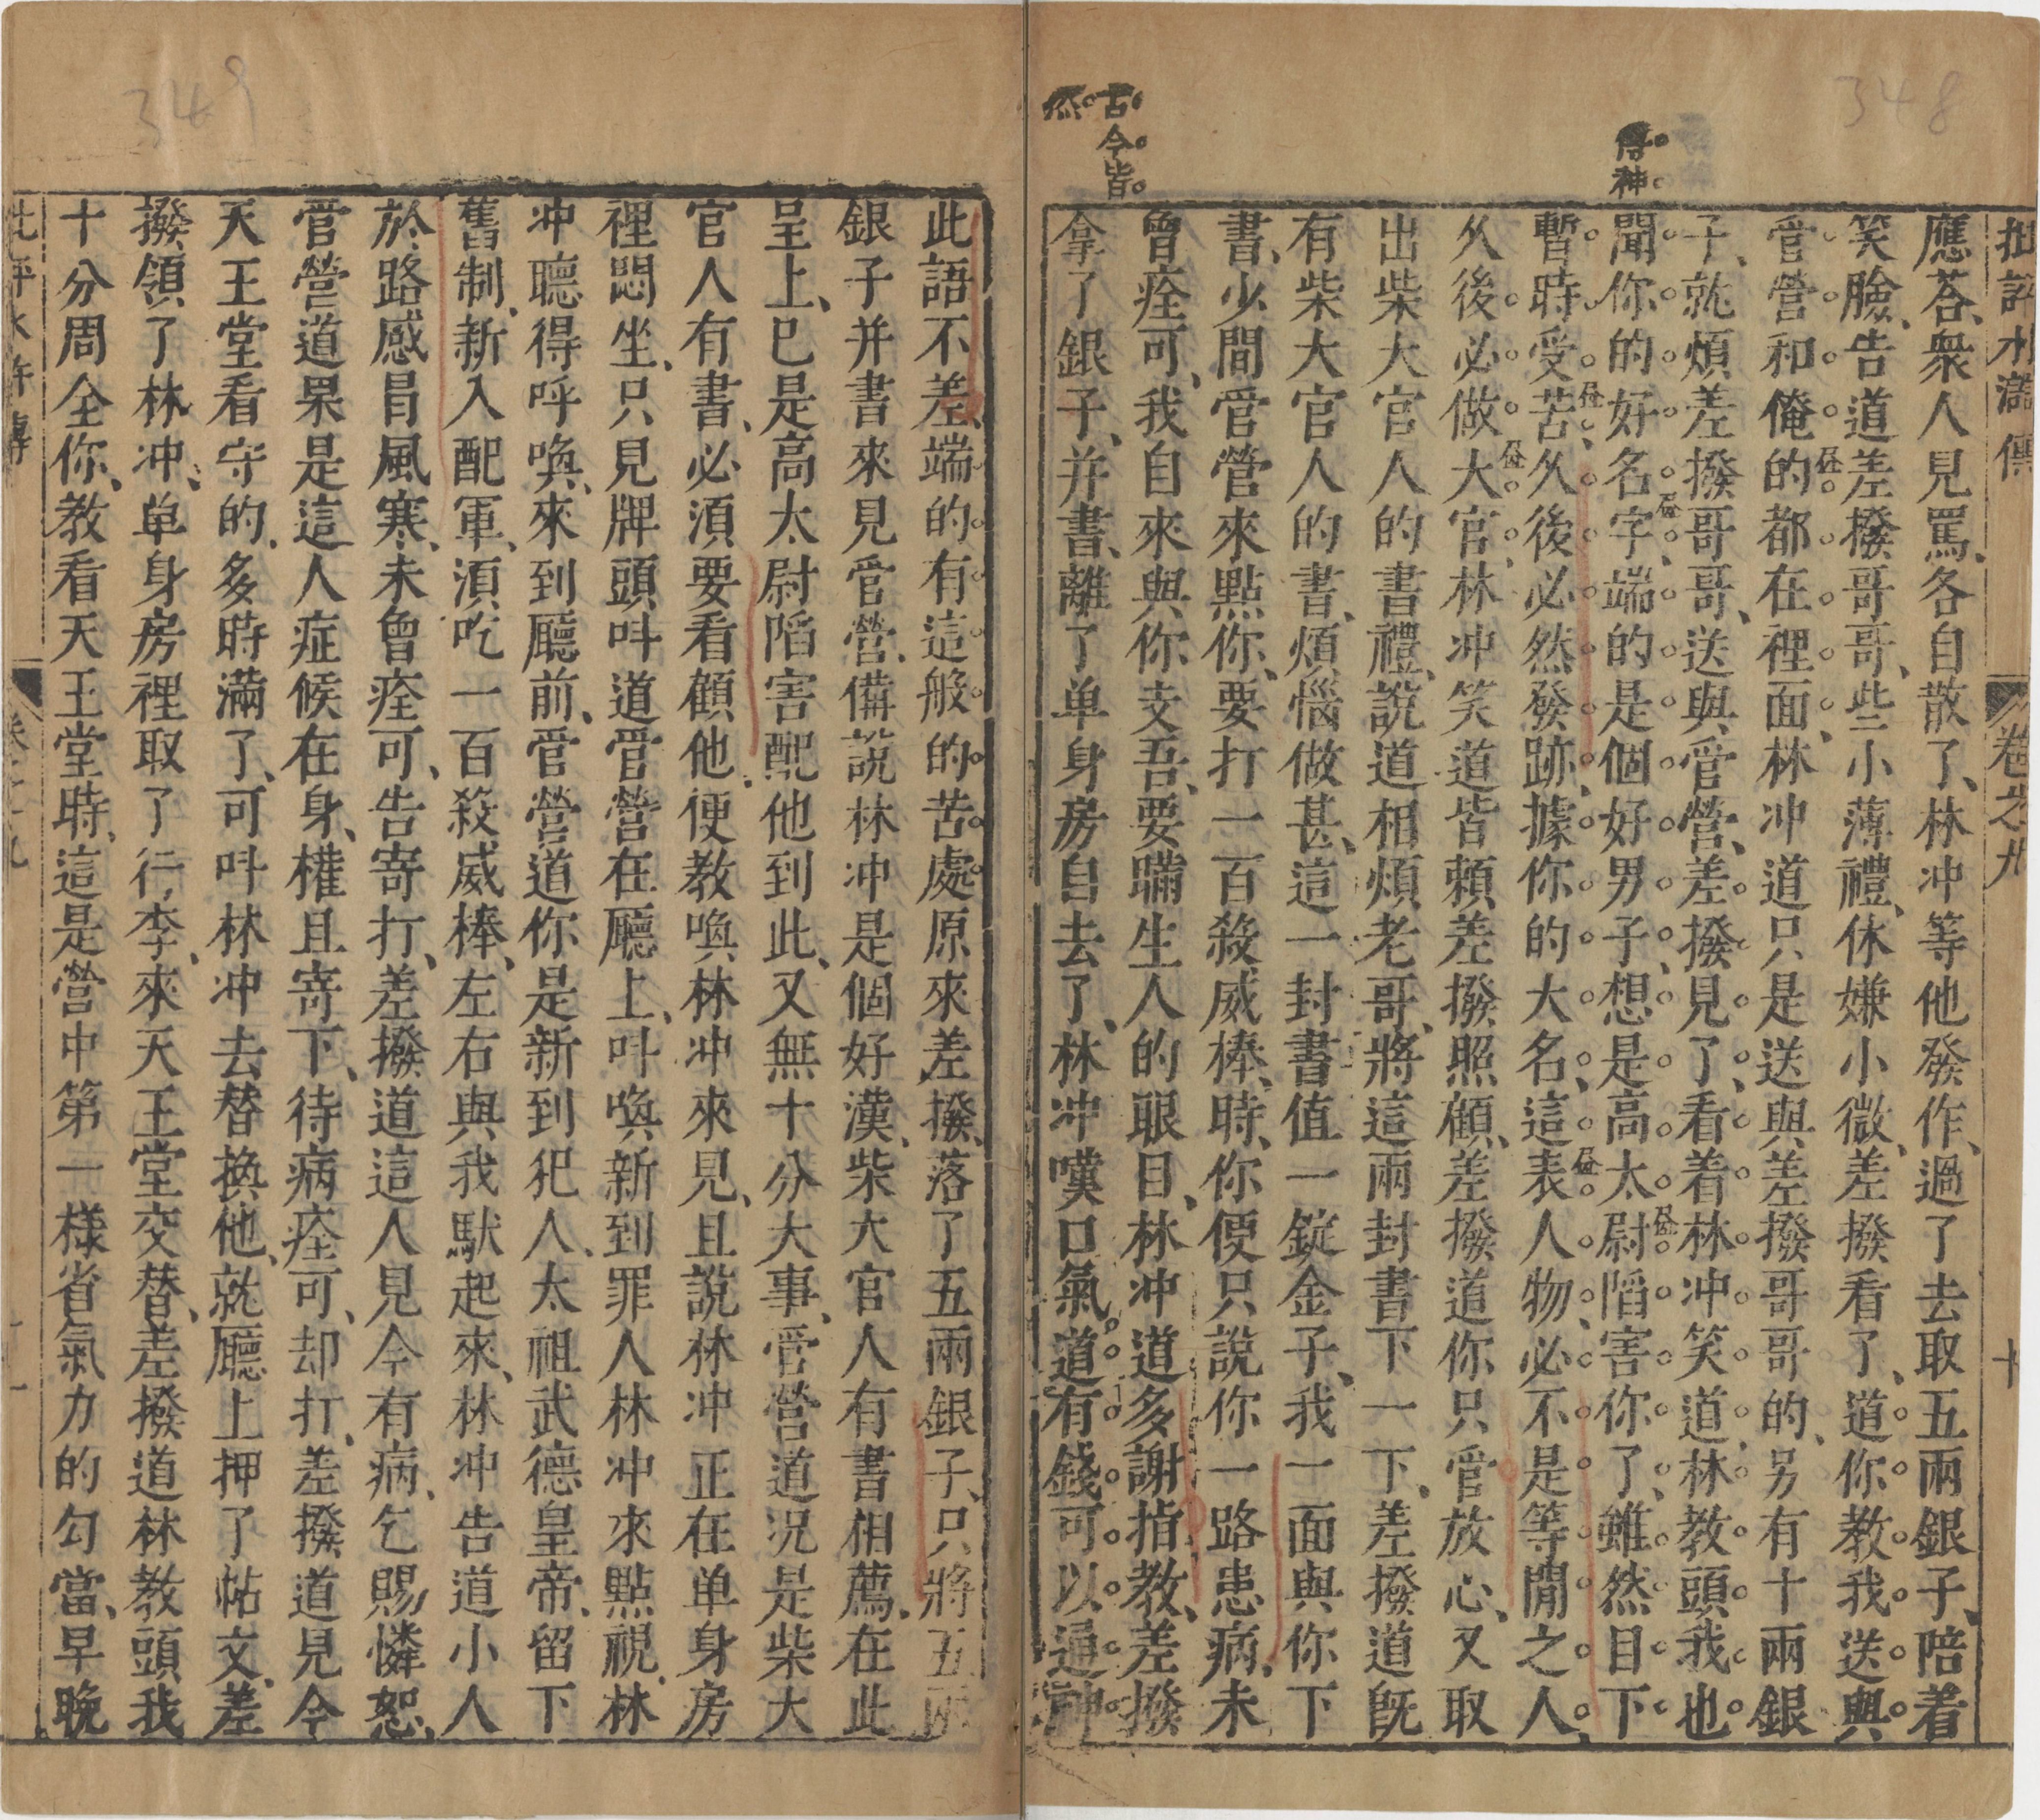 348
傳神
古今皆
然
批評水滸傳 卷之九 十
應荅、衆人見罵、各自散了、林冲等他發作、過了去取五兩銀子、陪着
笑臉、告道差撥哥哥、些小薄禮、休嫌小微、差撥看了、道你教我送與
管營和俺的都在裡面、林冲道只是送與差撥哥哥的、另有十兩銀
子、就煩差撥哥哥、送與管營、差撥見了、看着林冲笑道、林教頭我也
聞你的好名字、端的是個好男子、想是高太尉陷害你了、雖然目下
暫時受苦、久後必然發跡、據你的大名、這表人物、必不是等閒之人、
久後必做大官、林冲笑道皆賴差撥照顧、差撥道你只管放心、又取
出柴大官人的書禮、說道相煩老哥、將這兩封書下一下、差撥道既
有柴大官人的書、煩惱做甚、這一封書值一錠金子、我一面與你下
書、少間管營來點你、要打一百殺威棒、時、你便只說你一路患病、未
曾痊可、我自來與你支吾、要瞞生人的眼目、林冲道多謝指教、差撥
拿了銀子、并書、離了单身房自去了、林冲嘆口氣道有錢可以通神
349
此語不差、端的有這般的苦處原來差撥、落了五兩銀子、只將五兩
銀子并書來見管營、備說林冲是個好漢、柴大官人有書相薦、在此
呈上、已是高太尉陷害配他到此、又無十分大事、管營道况是柴大
官人有書、必須要看顧他、便教喚林冲來見、且說林冲正在单身房
裡悶坐、只見牌頭呌道管營在廳上、呌喚新到罪人林冲來點視、林
冲聽得呼喚、來到廳前、管營道你是新到犯人、太祖武德皇帝、留下
舊制、新入配軍、須吃一百殺威棒、左右與我馱起來、林冲告道小人
於路感冒風寒、未曾痊可、告寄打、差撥道這人見今有病、乞賜憐恕、
管營道果是這人症候在身、權且寄下、待病痊可、却打、差撥道見今
天王堂看守的、多時滿了、可呌林冲去替換他、就廳上押了帖文、差
撥領了林冲、单身房裡取了行李、來天王堂交替、差撥道林教頭我
十分周全你、教看天王堂時、這是營中第一樣省氣力的勾當、早晚
批評水滸傳 卷之九 十一